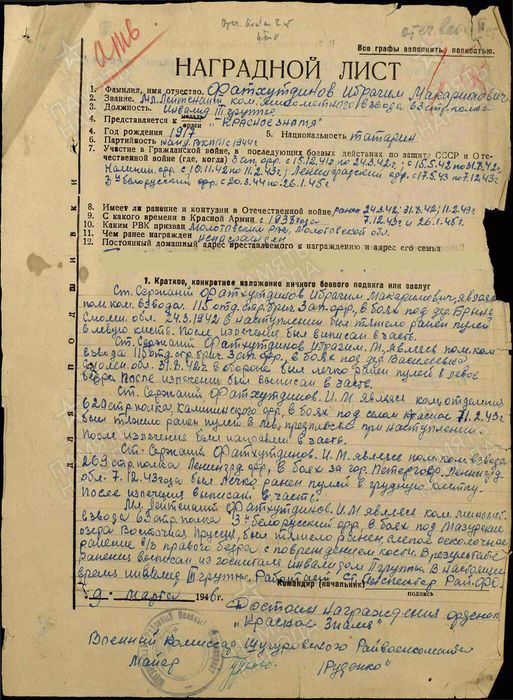 отеч. войны 2 ст
отеч. войны II
Все графы заполнять полностью.
НАГРАДНОЙ ЛИСТ
1. Фамилия, имя отчество Фатхутдинов Ибрагим Макаримович
2. Звание. Мл. Лейтенант, ком. минометного взвода 63 стр. полка
3. Должность. Инвалид III группы
4. Представляется к орден "КРАСНОЕ ЗНАМЯ"
4. Год рождения 1917 5. Национальность татарин
6. Партийность канд. ВКП(б) с 1944 г
7. Участие в Гражданской войне, в последующих боевых действиях по защите СССР и Оте-
чественной войне (где, когда) Зап. фр. с 15.12.41г по 24.3.42г; с 15.5.42 по 31.8.42г
Калинин. фр. с 10.11.42 по 11.2.43г; Ленинградский фр. с 17.5.43 по 7.12.43г
3й белорусский фр. с 20.3.44 по 26.1.45г
8. Имеет ли ранение и контузии в Отечественной войне ранен 24.3.42; 31.8.42; 11.2.43г
9. С какого времени в Красной Армии с 1938 года 7.12.43г и 26.1.45г
10. Каким РВК призван Молотовский РВК, Молотовской обл.
11. Чем ранее награжден Ненагражден
12. Постоянный домашный адрес преставляемого к награждению и адрес его семьи
1. Краткое, конкретное изложение личного боевого подвига или заслуг
Ст. Сержант Фатхутдинов Ибрагим Макаримович, являясь
пом. ком. взвода 115 отд. стр. бриг. Зап. фр, в боях под дер. Брынь
Смолен. обл. 24.3.1942 в наступлении был тяжело ранен пулей
в левую кисть. После излечение был выписан в часть.
Ст. Сержант Фатхутдинов Ибрагим. М. являясь пом. ком
взвода 115 отд. стр. бриг. Зап. фр, в боях под дер Василевко
Смолен. обл. 31.8.42г в обороне был легко ранен пулей в левое
бедра. После излечении был выписан в часть.
Ст. Сержант Фатхутдинов. И. М являясь ком. отделения
629 стр полка Калининского фр, в боях под селом Красное 11.2.43г
был тяжело ранен пулей в лев. предплечье при наступлении.
После излечение был направлен в часть.
Ст. Сержант Фатхутдинов. И. М. являясь пом. ком взвода
269 стр. полка Ленингр. фр, в боях за гор. Петергоф. Ленингр.
обл. 7.12.43года был легко ранен пулей в грудную клетку.
После излечения выписан в часть.
Мл. Лейтенант Фатхутдинов. И. М являясь ком. минометн.
взвода 63 стр. полка 3й белорусский фр, в боях под Мазурские
озера Восточная Пруссия, был тяжело ранен, слепое осколочное
ранение в/з правого бедра с повреждением кости. В результате
ранение выписан из госпиталя инвалидом II группы. В настоящее
время инвалид III группы, Работает Ст. Инспектор РайФО.
Командир (начальник)
„9" марта 1946г. подпись
Достоин награждения орденом
"Красное Знамя"
Военный Комиссар Шугуровского Райвоенкомата
Майор /Руденко/